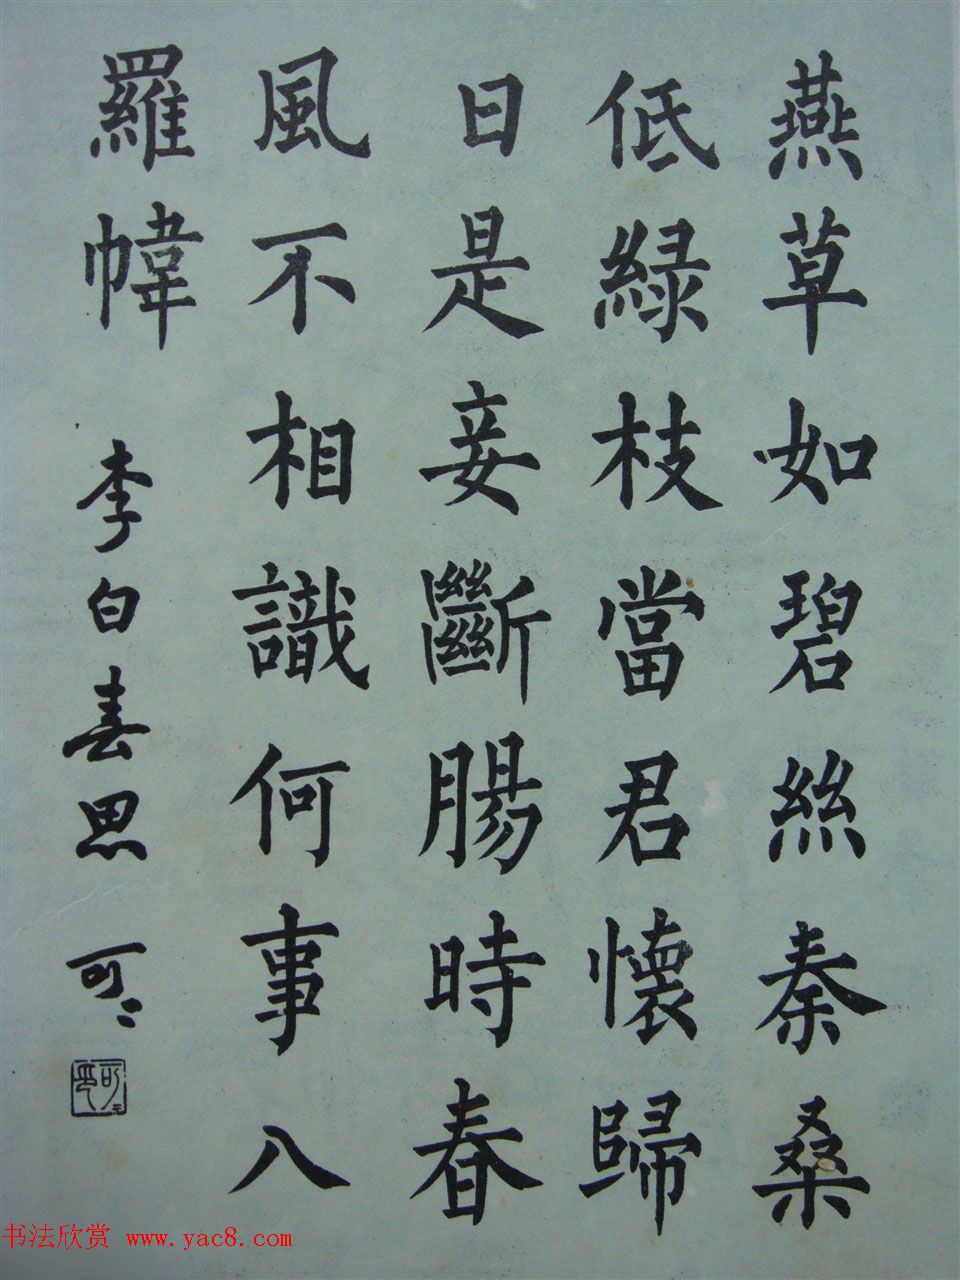 燕草如碧絲秦桑
低綠枝當君懷歸
日是妾斷腸時春
風不相識何事八
羅幃
李白春思 可〻
書法欣賞 www.yac8.com